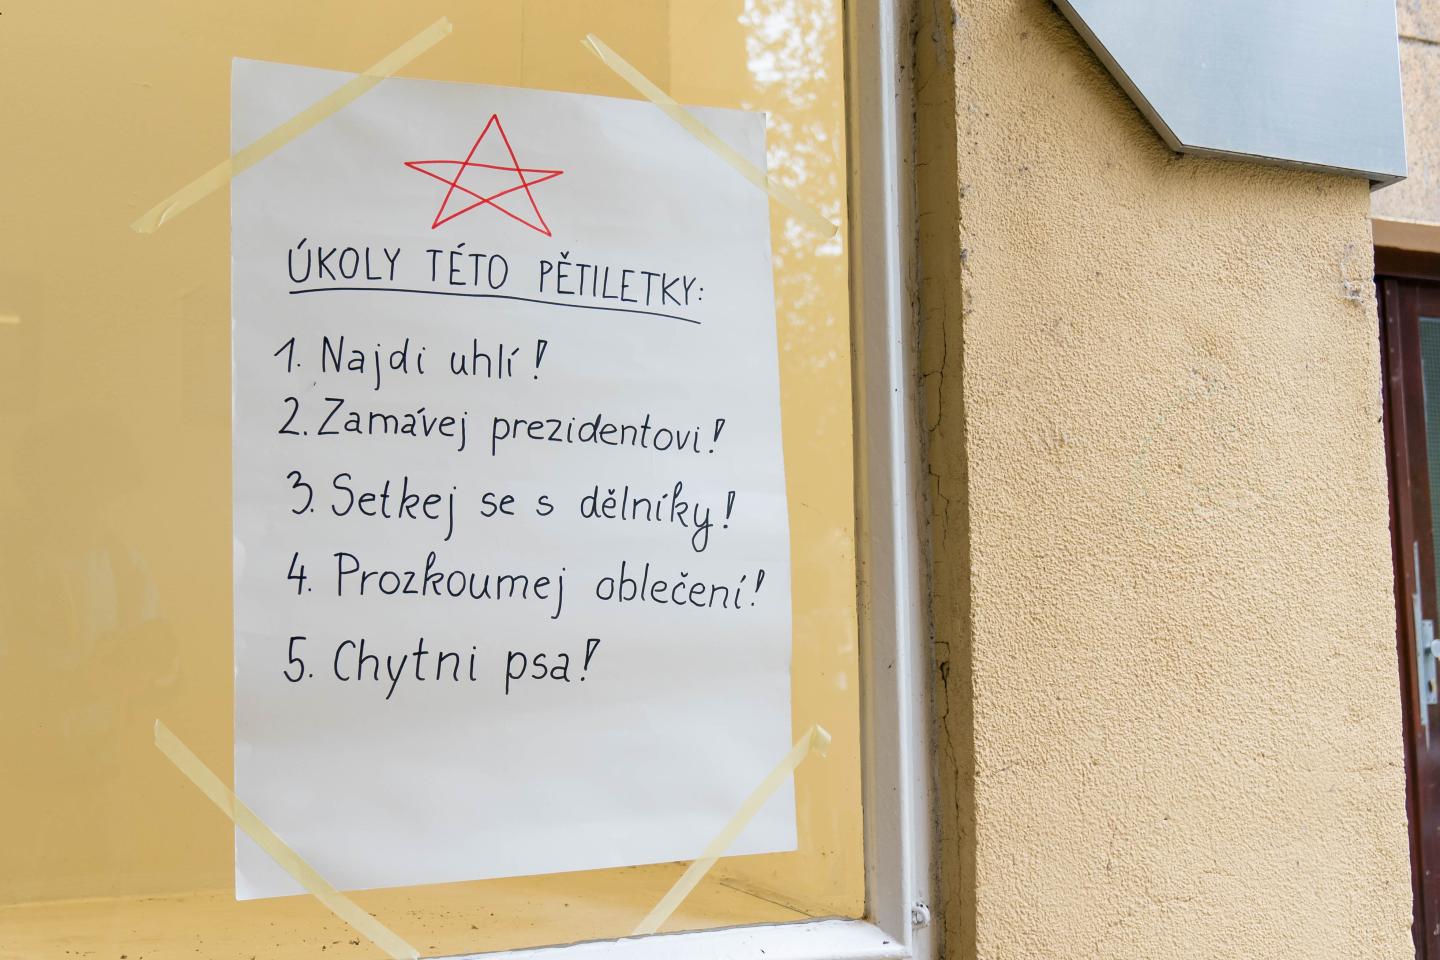 ÚKOLY TÉTO PĚTILETKY:
1. Najdi uhlí!
2. Zamávej prezidentovi!
3. Setkej se s dělníky!
4. Prozkoumej oblečení!
5. Chytni psa!